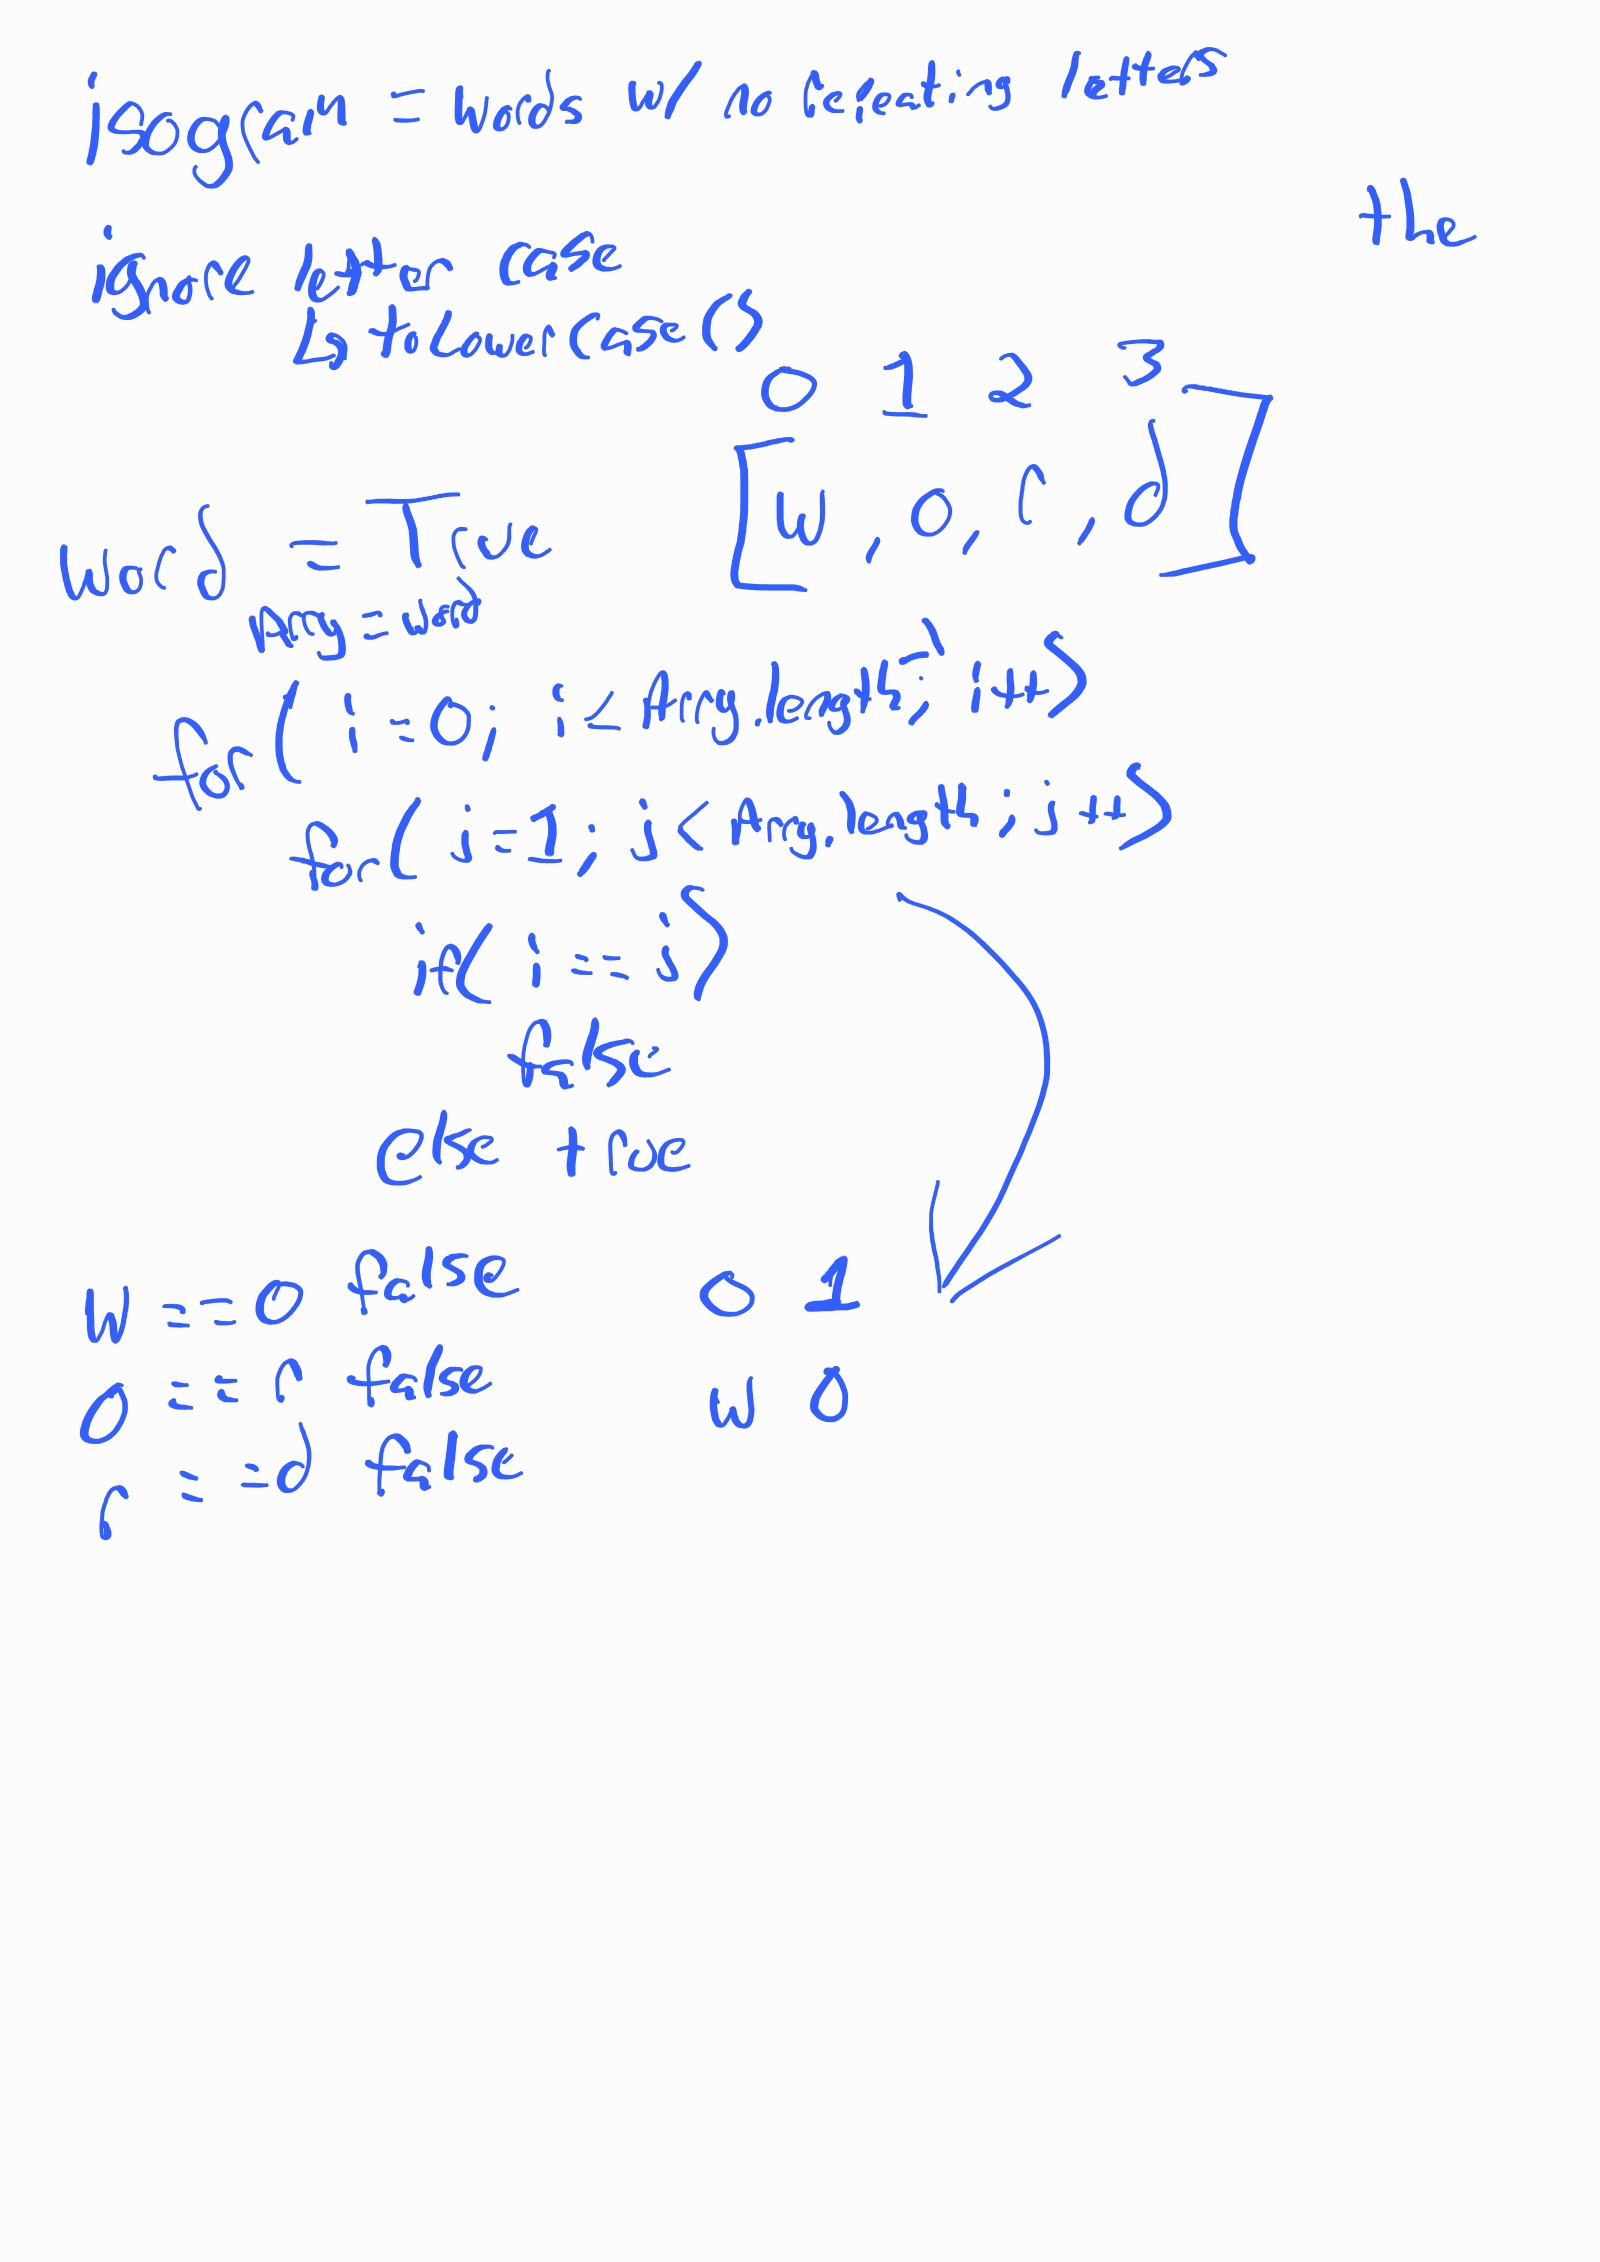 isogram = words w/ no repeating letters
the
ignore letter case
↳ toLowerCase()
0 1 2 3
[w, o, r, d]
word = True
Arry = word
for( i=0; i ≤ Arry.length-1; i++)
for( j=1; j < Arry.length; j++)
if( i == j)
false
else true
w == o false
o == r false
r == d false
0 1
w o